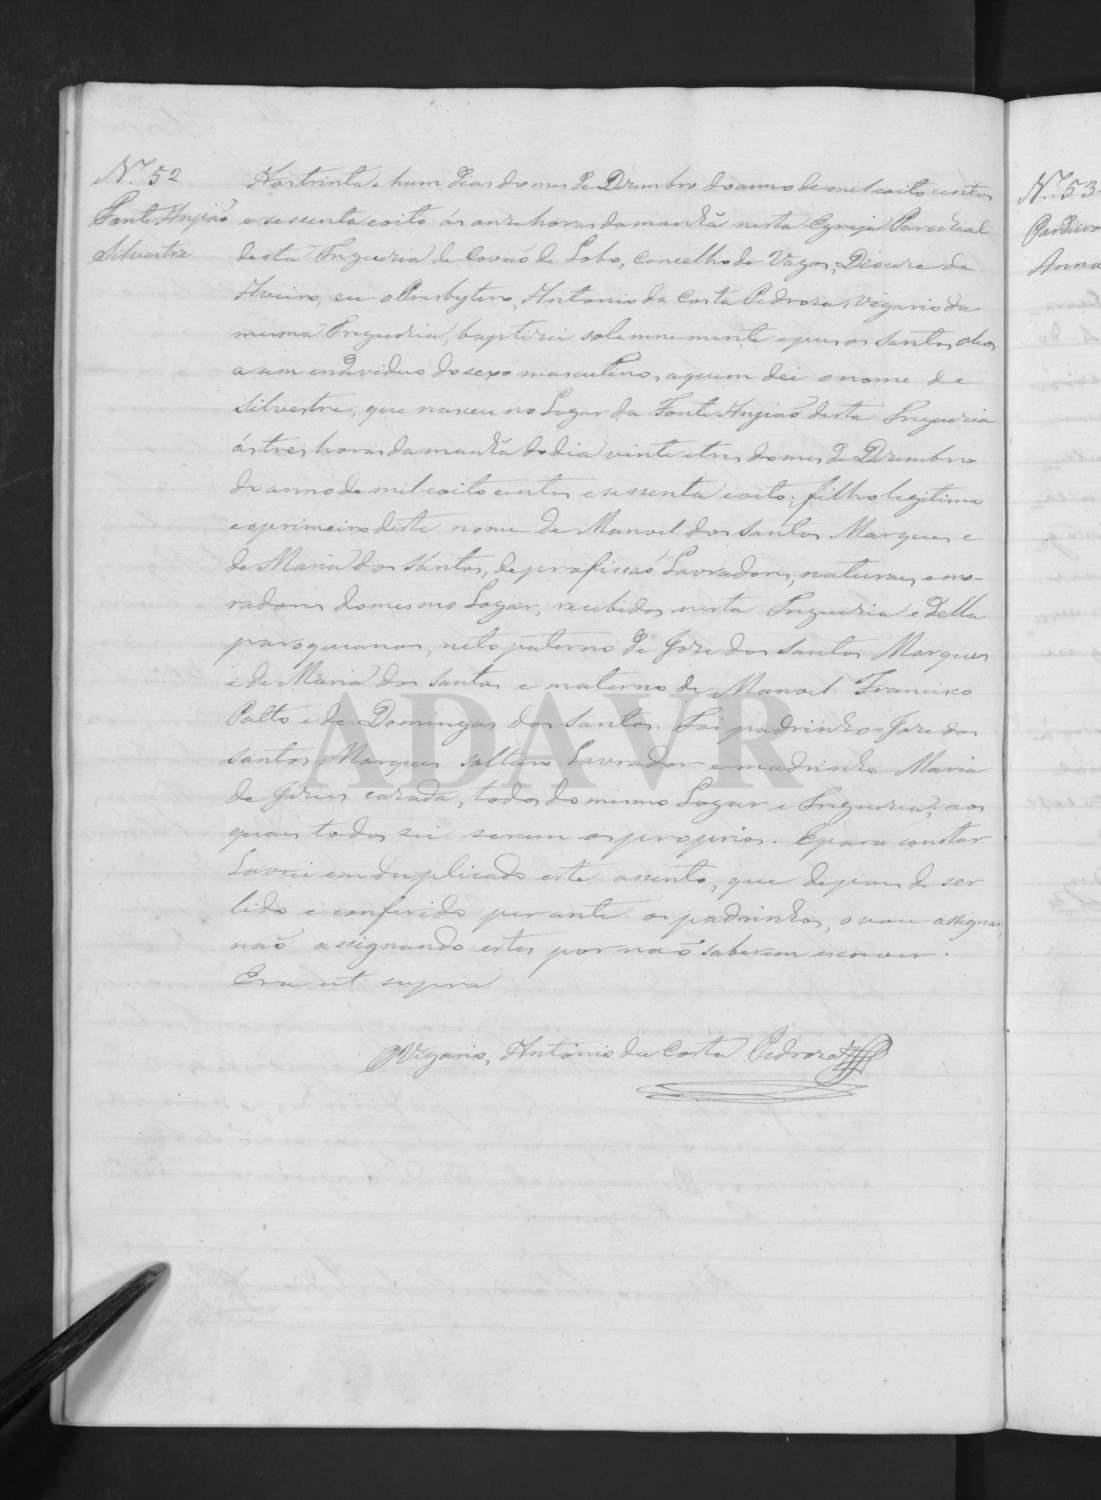 N.º 52
Fonte Anjiaõ
Silvestre
Aos trinta e hum dias do mes de Dezembro do anno de mil e oito centos
e sessenta e oito ás onze horas da manhã nesta Egreja Parochial
desta Freguezia de Covaõ de Lobo, Concelho de Vagos, Diocese de
Aveiro, eu o Presbytero, Antonio da Costa Pedroza, Vigario da
mesma Freguezia, baptizei solemnemente e puz os santos oleos
a um individuo do sexo masculino, a quem dei o nome de
Silvestre, que nasceu no Logar da Fonte Anjiaõ desta Freguezia
ás tres horas da manhã do dia vinte e tres do mes de Dezembro
do anno de mil e oito centos e sessenta e oito; filho legitimo
e o primeiro deste nome de Manoel dos Santos Marques e
de Maria dos Santos, de profissaõ Lavradores, naturaes e mo-
radores do mesmo Logar, recebidos nesta Freguezia e della
paroquianos, neto paterno de Joze dos Santos Marques
e de Maria dos Santos e materno de Manoel Francisco
Palto e de Domingas dos Santos. Foi padrinho Joze dos
Santos Marques solteiro Lavrador e madrinha Maria
de Jezus cazada, todos do mesmo Logar e Freguezia; aos
quaes todos sei serem os proprios. E para constar
Lavrei em duplicado este assento, que depois de ser
lido e conferido perante os padrinhos, o vou assignar,
naõ assignando estes por naõ saberem escrever.
Era ut supra
O Vigario, Antonio da Costa Pedroza
ADAVR
N.º 53
Anna